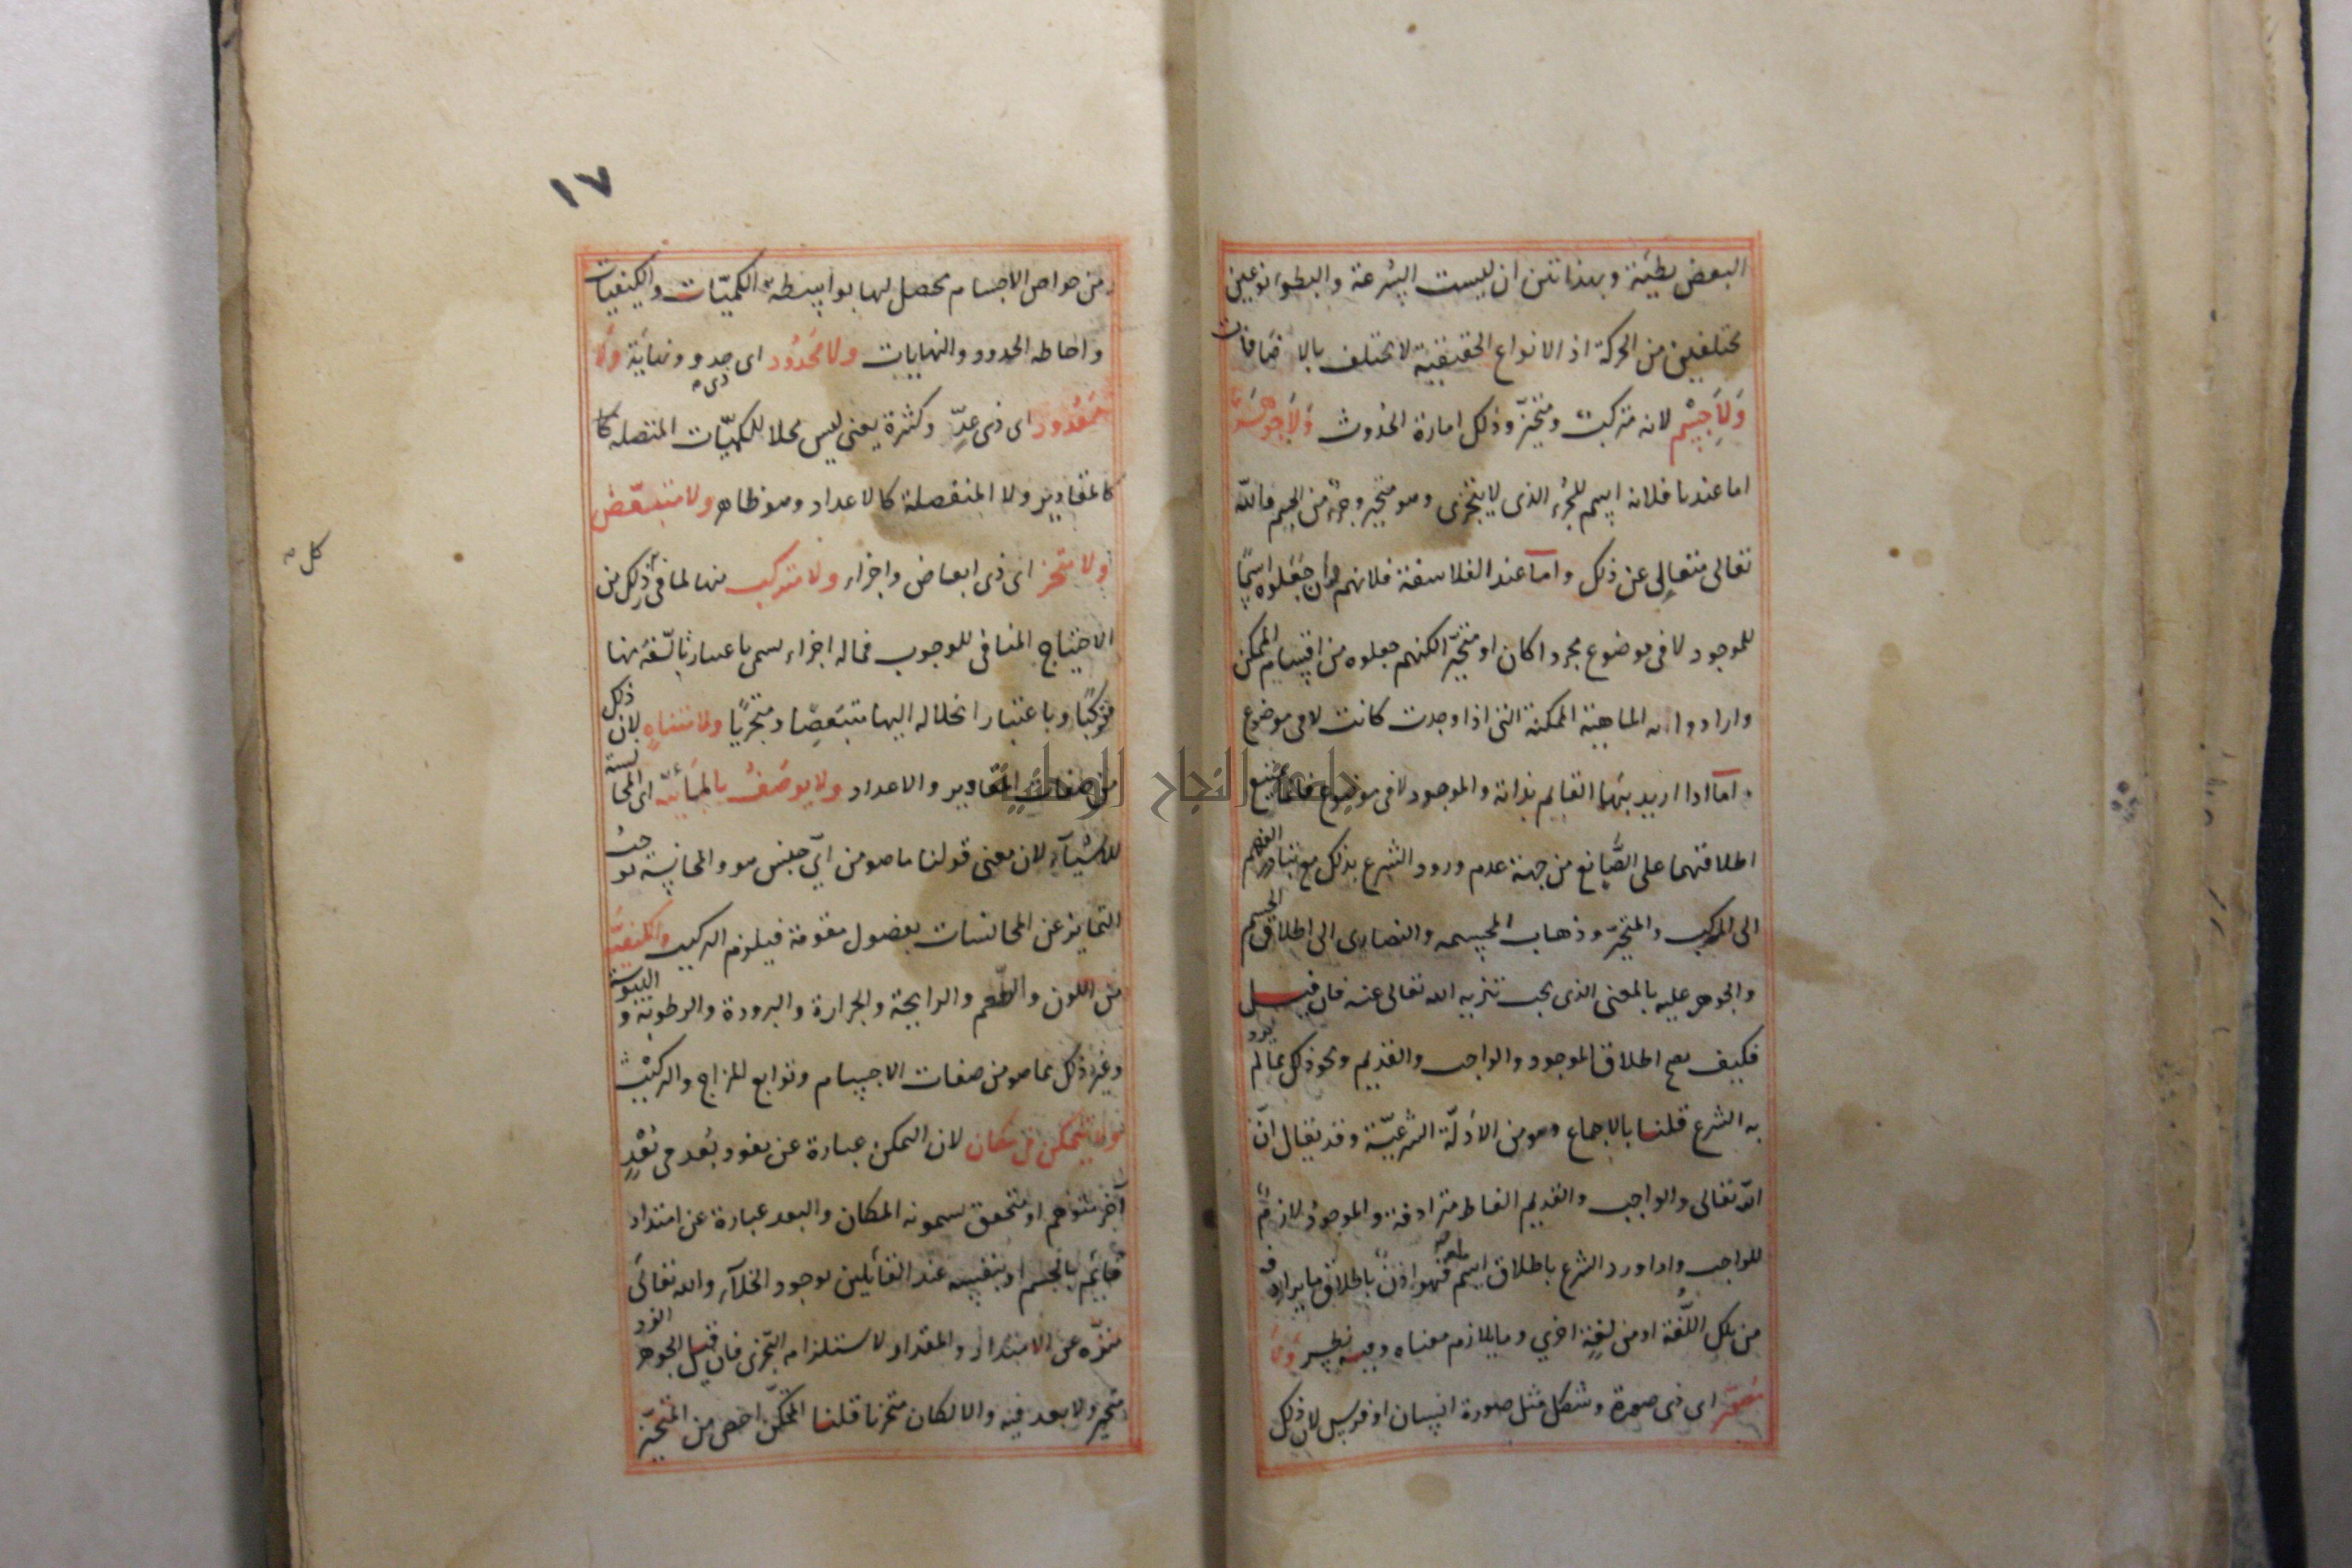 البعض بطيئة وبهذا تبين ان ليست السرعة والبطوء نوعين
مختلفين من الحركة اذ الانواع الحقيقية لا تختلف بالاضافات
ولا جسم لانه متركب ومتحيز وذلك امارة الحدوث ولا جوهر
اما عندنا فلانه اسم للجزء الذى لا يتجزى وهو متحيز وجزء من الجسم فالله
تعالى متعالى عن ذلك واما عند الفلاسفة فلانهم وان جعلوه اسما
للموجود لا فى موضوع مجردا كان او متحيزا لكنهم جعلوه من اقسام الممكن
وارادوا به الماهية الممكنة التى اذا وجدت كانت لا فى موضوع
واما اذا اريد بهما القايم بذاته والموجود لا فى موضوع فانما يمتنع
اطلاقهما على الصانع من جهة عدم ورود الشرع بذلك مع تبادر الفهم
الى المركب والمتحيز وذهاب المجسمه والنصارى الى اطلاق الجسم
والجوهر عليه بالمعنى الذى يجب تنزيه الله تعالى عنه فان قيل
فكيف يصح اطلاق الموجود والواجب والقديم ونحو ذلك مما لم يرد
به الشرع قلنا بالاجماع وهو من الادلة الشرعية وقد يقال ان
الله تعالى والواجب والقديم الفاظ مترادفة والموجود لازم
للواجب واذا ورد الشرع باطلاق اسم بلغة فهو اذن باطلاق ما يرادفه
من تلك اللغة او من لغة اخرى وما يلازم معناه وفيه نظر ولا
مصور اى ذى صورة وشكل مثل صورة انسان او فرس لان ذلك
١٧
من خواص الاجسام تحصل لها بواسطة الكميات والكيفيات
واحاطه الحدود والنهايات ولا محدود اى ذى حدو ونهاية ولا
معدود اى ذى عد وكثرة يعنى ليس محلا للكميات المتصله كا
كالمقادير ولا المنفصلة كالاعداد وهو ظاهر ولا متبعض
ولا متجز اى ذى ابعاض واجزاء ولا متركب منها لما فى كل ذلك من
الاحتياج المنافى للوجوب فماله اجزاء يسمى باعتبار تألفه منها
مركبا وباعتبار انحلاله اليها متبعضا ومتجزيا ولا متناه لان ذلك
من صفات المقادير والاعداد ولا يوصف بالمائية اى المجانسة
للاشياء لان معنى قولنا ما هو من اى جنس هو والمجانسة توجب
التمايز عن المجانسات بفصول مقومة فيلزم التركيب ولا بكيفية
من اللون والطعم والرايحة والحرارة والبرودة والرطوبة واليبوسة
وغير ذلك مما هو من صفات الاجسام وتوابع المزاج والتركيب
ولا يتمكن فى مكان لان التمكن عبارة عن نفوذ بعد فى بعد
آخر متوهم او متحقق يسمونه المكان والبعد عبارة عن امتداد
قايم بالجسم او بنفسه عند القائلين بوجود الخلاء والله تعالى
منزه عن الامتداد والمقدار لاستلزامه التجزى فان قيل الجوهر الفرد
متحيز ولا بعد فيه والا لكان متجزيا قلنا التمكن اخص من المتحيز
كل
جامعة النجاح الوطنية